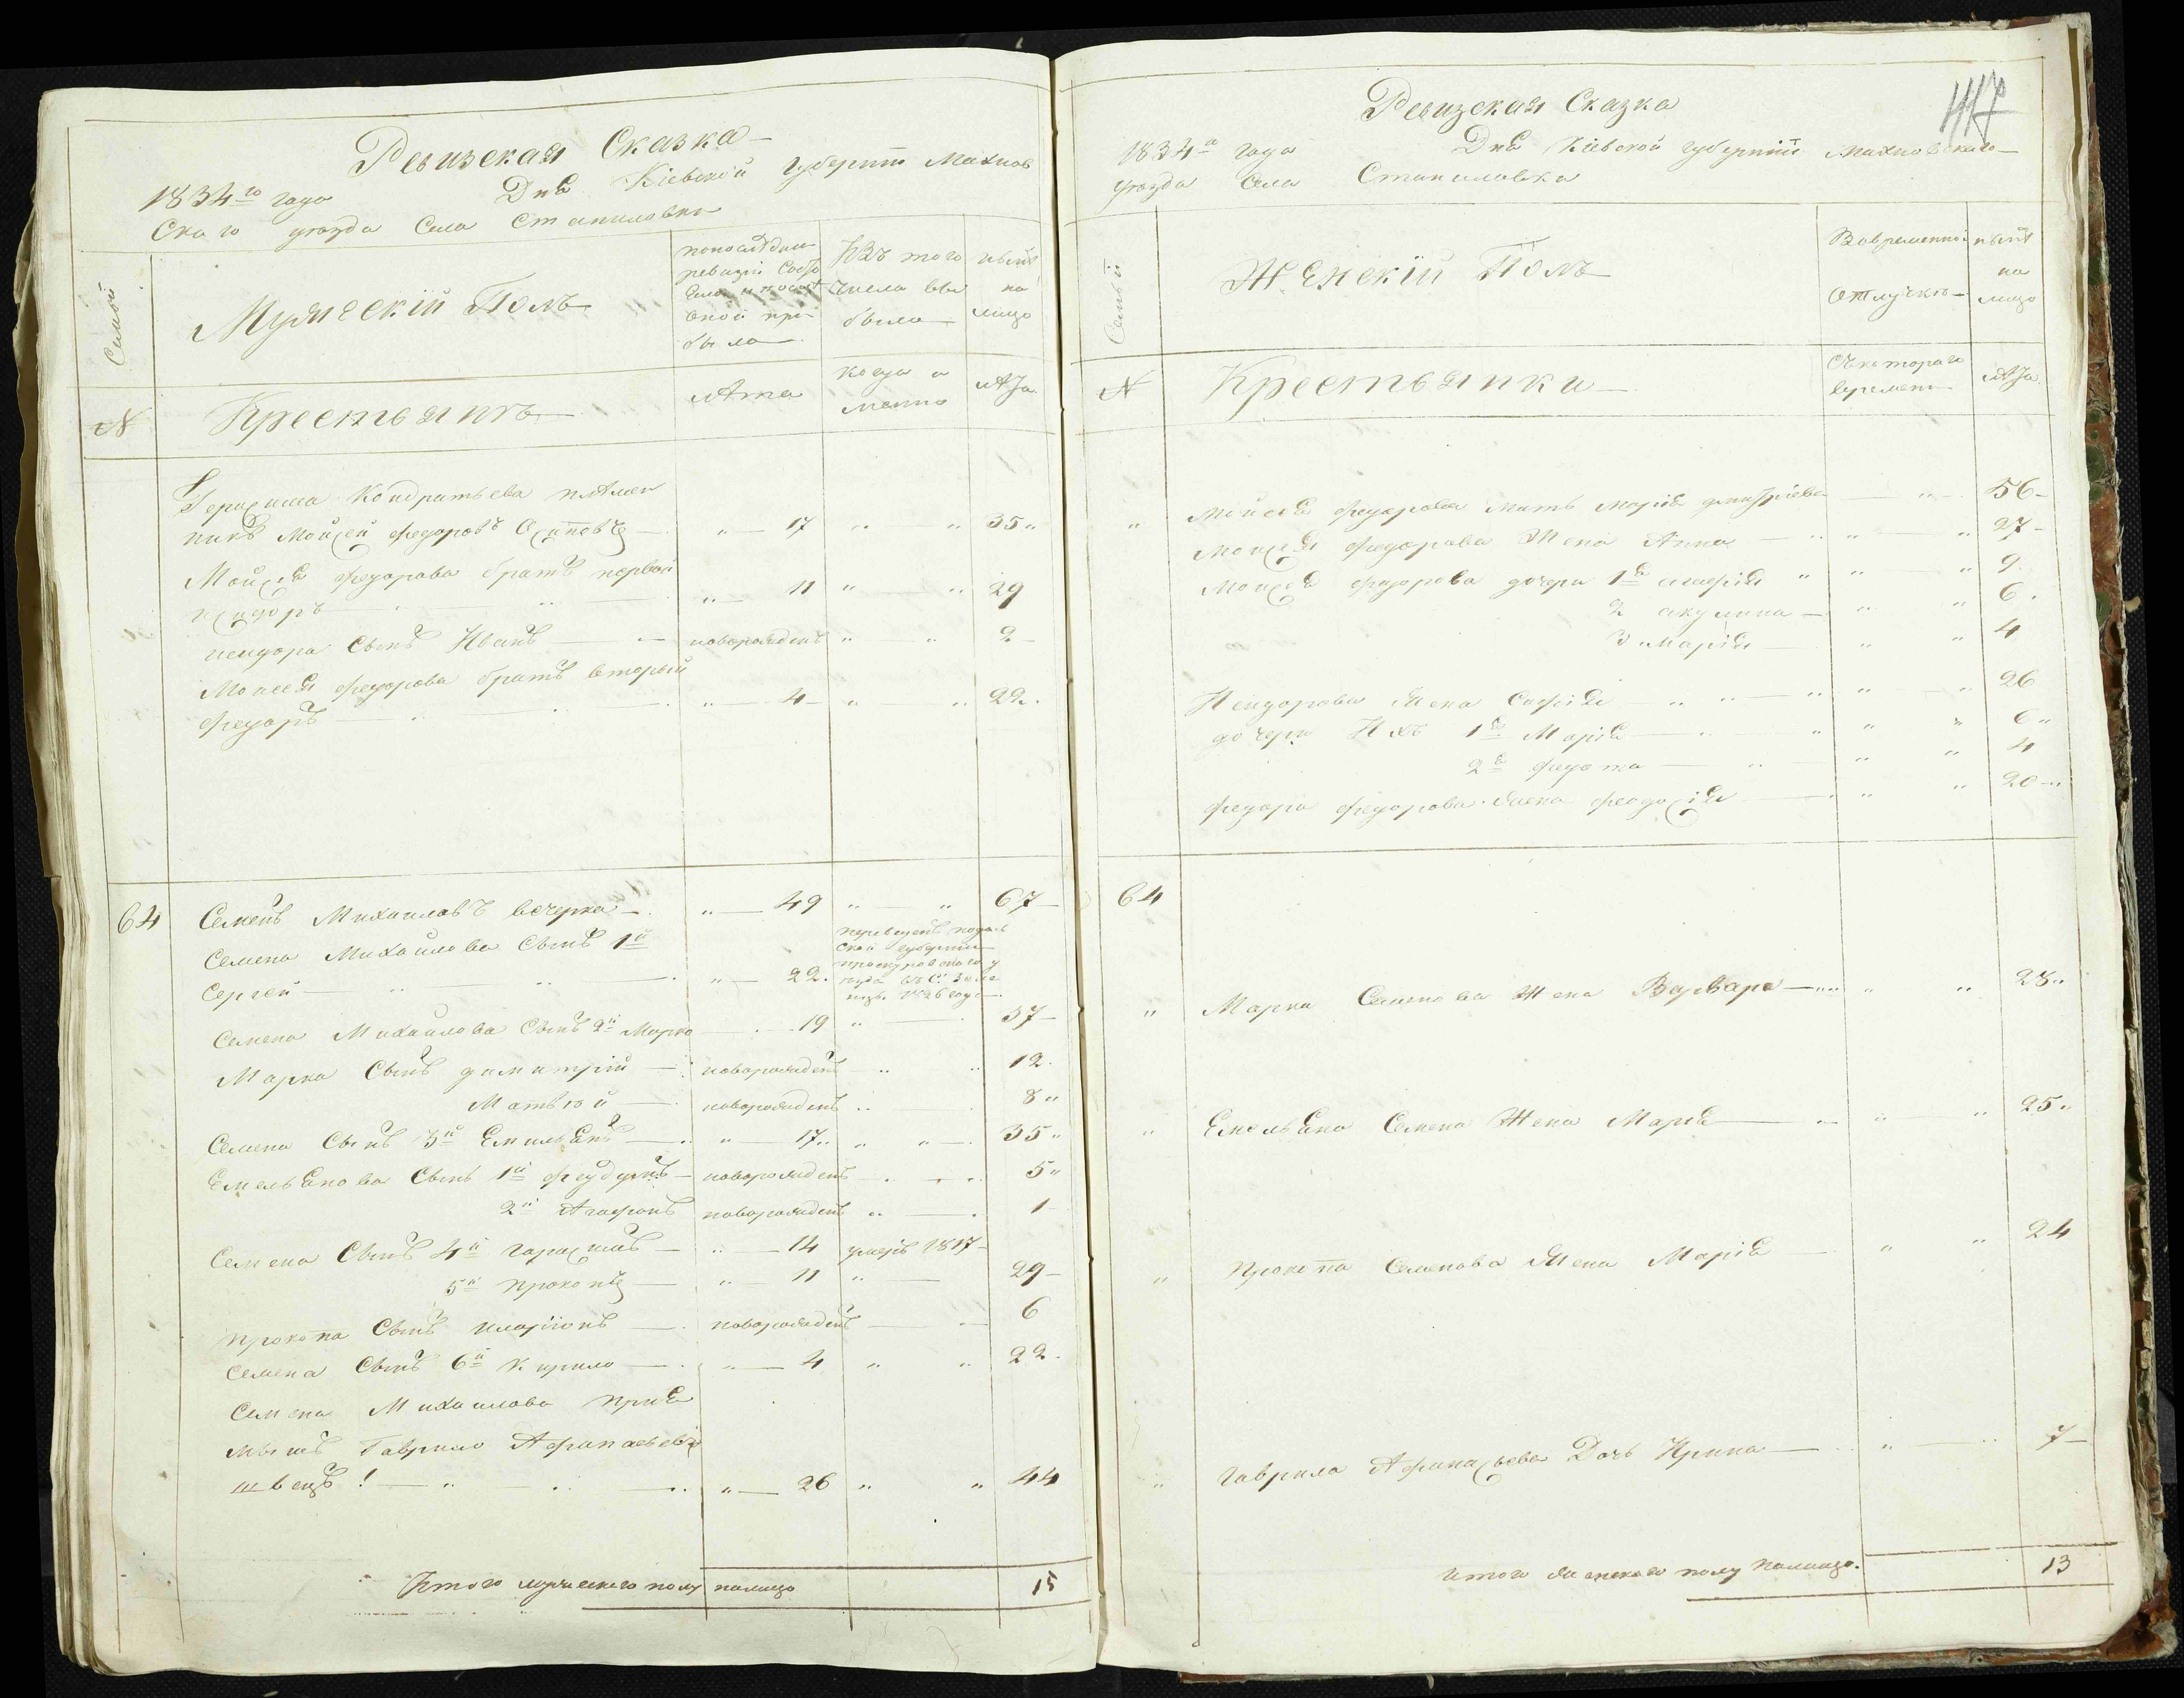 Ревизская Сказка
1834го года Дня Кіевской Губерніи Махнов
Скаго уезда Села Станиловки
Семьи
Мужескій Полъ
попоследней ревизіи Состояло и после оной прибыло
Изъ того числа выбыло
ныне на лицо
N
Крестьянъ
лета
когда именно
лета
Герасима Кондратьева племен
никъ Мойсей Федоровъ 17 " " 35
Мойсея Федорова братъ первой
исидоръ 11 " " 29
исидора Сынъ Иванъ новорожденъ " " 2
Моисея Федорова братъ вторый
Федоръ 4 " " 22
64 Семенъ Михаиловъ вечерка 49 " " 67
Семена Михайлова Сынъ 1й
Сергей 22
переведенъ подоль
ской губерніи
проскуровскаго у
1826 года
Семена Михаилова Сынъ 2й Марко 19 " 37
Марка Сынъ димитрій новорожденъ 12
Матвей новорожденъ 8
Семена Сынъ 3й Емильянъ 17 " " 35
Емельянова Сынъ 1й новорожденъ 5
2й Агафонъ новорожденъ 1
Семена Сынъ 4й гарасимъ 14 умеръ 1817
5й прокопъ 11 " 29
прокопа Сынъ иларіонъ новорожденъ 6
Семена Сынъ 6й Кирило 4 " " 22
Семена Михаилова пріе
мышъ Гаврило Афанасьевъ
швецъ 26 " " 44
Итого мужескаго полу налицо 15
117
Ревизская Сказка
1834го года Дня Кіевской губерніи Махновскаго
уезда Села Станиловки
Семьи
Женскій Полъ
Вовременной отлучке
ныне на лицо
N
Крестьянки
Съкотораго времени
лета
" Мойсея Федорова мать Марія дмитріева " 56
Моисея Федорова Жена Анна " " 27
Моисея Федорова дочери 1я агафія " " 9
2 акулина " " 6
3 Марія " " 4
Исидорова Жена Софія " " 26
дочери Ихъ 1я Марія " " 6
2я Федота " " 4
Федора Федорова жена Феодосія " " 20
64
" Марка Семенова Жена Варвара " " 28
" Емельяна Семена Жена Марія " " 25
" Прокопа Семенова Жена Марія " " 24
" Гаврила Афанасьева Дочь Ирина " 7
Итого женскаго полу налицо. 13